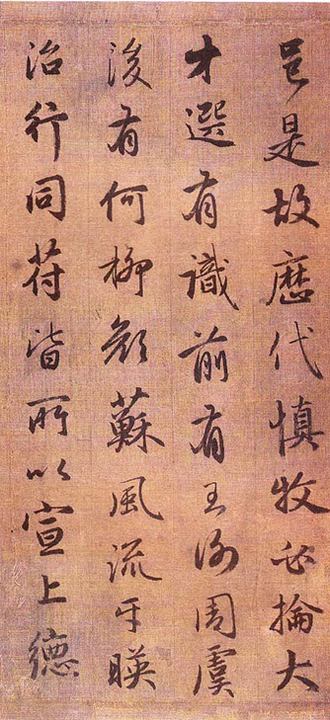 邑是故歷代慎牧必掄大
才選有識前有王謝周虞
後有何柳顏蘇風流互暎
治行同苻皆所以宣上德